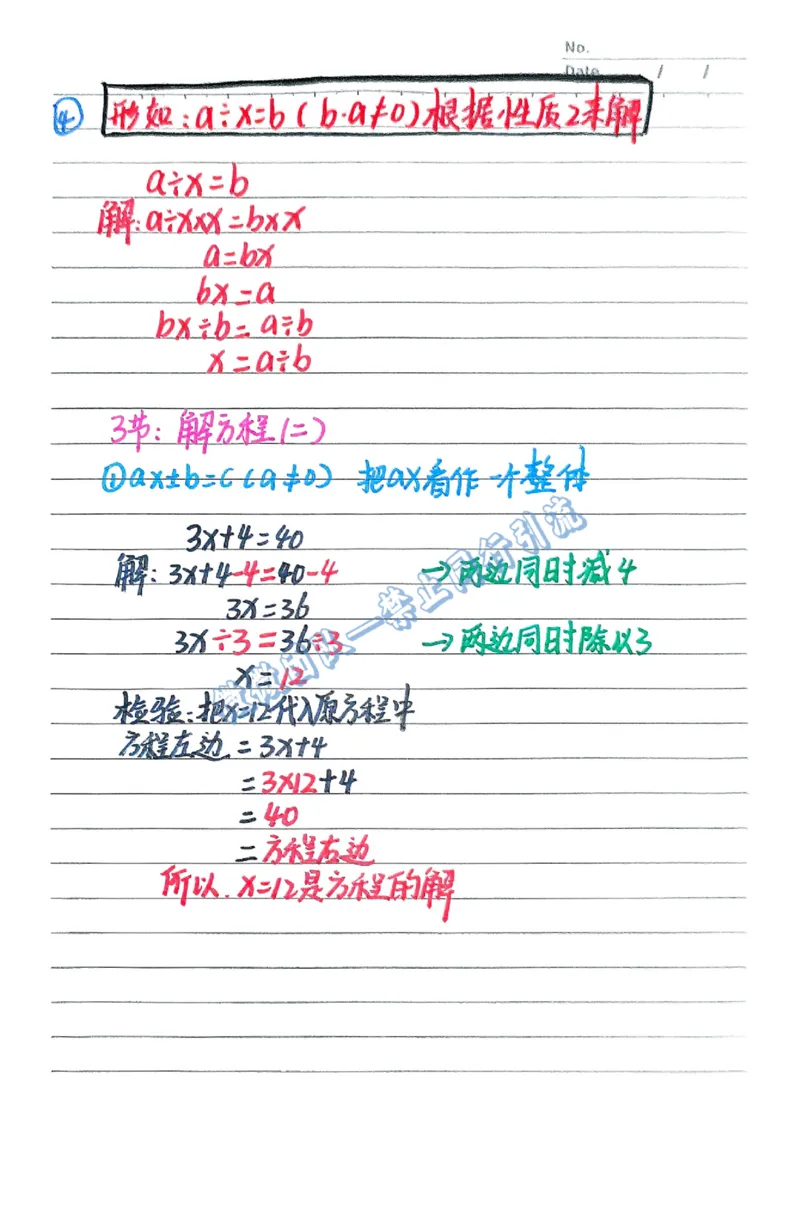 No.
Date / /
④ 形如:a÷x=b(b·a≠0)根据性质2来解
a÷x=b
解:a÷x×x=b×x
a=bx
bx=a
bx÷b=a÷b
x=a÷b
3节:解方程(二)
①ax±b=c(a≠0) 把ax看作一个整体
3x+4=40
解:3x+4-4=40-4 →两边同时减4
3x=36
3x÷3=36÷3 →两边同时除以3
x=12
检验:把x=12代入原方程中
方程左边=3x+4
=3×12+4
=40
=方程右边
所以.x=12是方程的解
一禁止同行引流